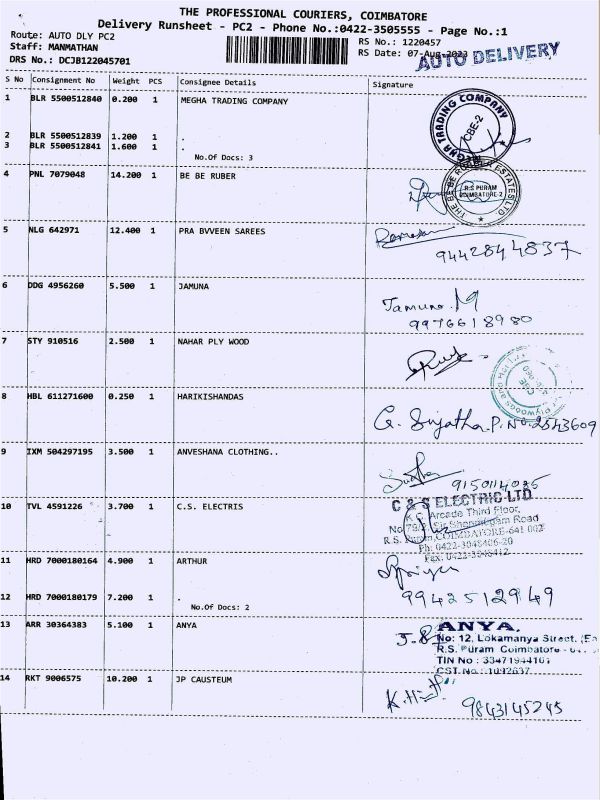 THE PROFESSIONAL COURIERS, COIMBATORE
Delivery Runsheet - PC2 - Phone No.:0422-3505555 - Page No.:1
Route: AUTO DLY PC2
RS No.: 1220457
Staff: MANMATHAN
RS Date: 07-Aug-2023
AUTO DELIVERY
DRS No.: DCJB122045701
S No Consignment No Weight PCS Consignee Details Signature
1 BLR 5500512840 0.200 1 MEGHA TRADING COMPANY
MEGHA TRADING COMPANY
CBE-2
2 BLR 5500512839 1.200 1 .
3 BLR 5500512841 1.600 1 .
No.Of Docs: 3
4 PNL 7079048 14.200 1 BE BE RUBER
THE BE BE RUBBER ESTATES LTD
R.S PURAM
COIMBATORE-2
5 NLG 642971 12.400 1 PRA BVVEEN SAREES
9442844837
6 DDG 4956260 5.500 1 JAMUNA
Jamuna. M
9976618980
7 STY 910516 2.500 1 NAHAR PLY WOOD
8 HBL 611271600 0.250 1 HARIKISHANDAS
G. Sujatha. P. No. 2543609
9 IXM 504297195 3.500 1 ANVESHANA CLOTHING..
9150114085
10 TVL 4591226 3.700 1 C.S. ELECTRIS
C & S ELECTRIC LTD
Arcade Third Floor,
Road
R.S. Puram, COIMBATORE-641 002
Ph: 0422-3048406-20
Fax: 0422-3048412
11 HRD 7000180164 4.900 1 ARTHUR
12 HRD 7000180179 7.200 1 .
No.Of Docs: 2
9942512949
13 ARR 30364383 5.100 1 ANYA
ANYA.
No: 12, Lokamanya Street,
R.S. Puram Coimbatore
TIN No : 33471944161
CST No : 1092637
14 RKT 9006575 10.200 1 JP CAUSTEUM
9843145245